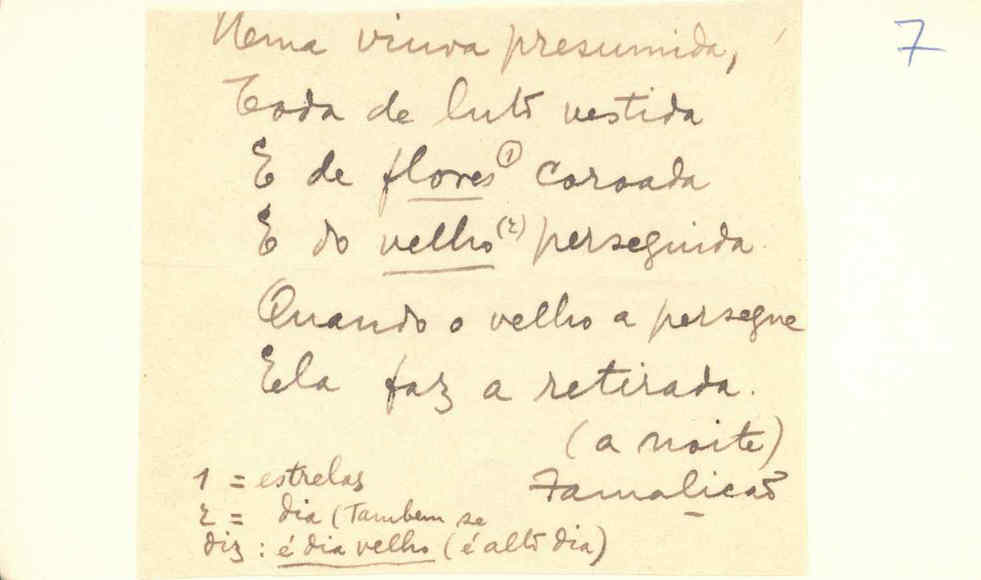 7
Uema viuva presumida,
Toda de luto vestida
E de flores (1) coroada
E do velho (2) perseguida
Quando o velho a persegue
Ela faz a retirada.
(a noite)
1 = estrelas
Famalicão
2 = dia (Tambem se
diz: é dia velho (é alto dia)